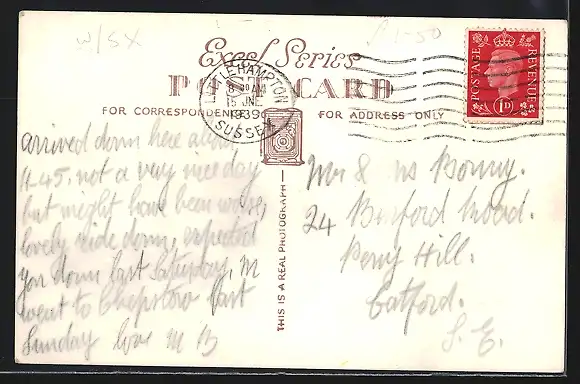 W/SX
1-50
Excel Series
POST CARD
LITTLEHAMPTON
8 30 AM
15 JNE.
1939
SUSSEX
POSTAGE REVENUE
1D
FOR CORRESPONDENCE
FOR ADDRESS ONLY
THIS IS A REAL PHOTOGRAPH
arrived down here about
4-45. not a very nice day
but meght have been worse,
lovely ride down, expected
you down last Saturday, M
went to Chepstow last
Sunday love M B
Mr & Ms Bonny.
24 Burford Road.
Perry Hill.
Catford.
S. E.